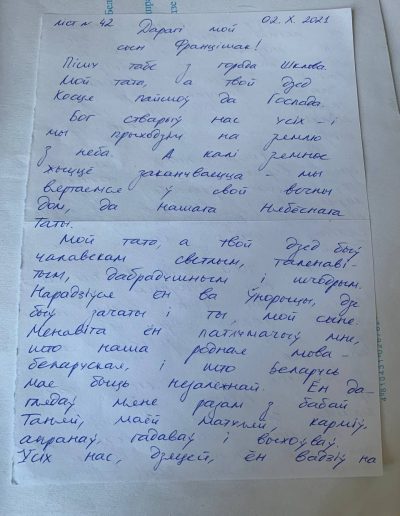 ліст № 42 Дарагі мой 02.X.2021
сын Францішак!
Пішу табе з горада Шклова.
Мой тата, а твой дзед
Косця пайшоў да Госпада.
Бог стварыў нас усіх – і
мы прыходзім на зямлю
з неба. А калі зямное
жыццё заканчваецца – мы
вяртаемся ў свой вечны
дом, да нашага Нябеснага
Таты.
Мой тата, а твой дзед быў
чалавекам светлым, таленаві-
тым, дабрадушным і шчодрым.
Нарадзіўся ён ва Ўнорыцы, дзе
быў зачаты і ты, мой сыне.
Менавіта ён патлумачыў мне,
што наша родная мова –
беларуская, і што Беларусь
мае быць незалежнай. Ён да-
глядаў мяне разам з бабай
Таняй, маёй Матуляй, карміў,
апранаў, гадаваў і выхоўваў.
Усіх нас, дзяцей, ён вадзіў на